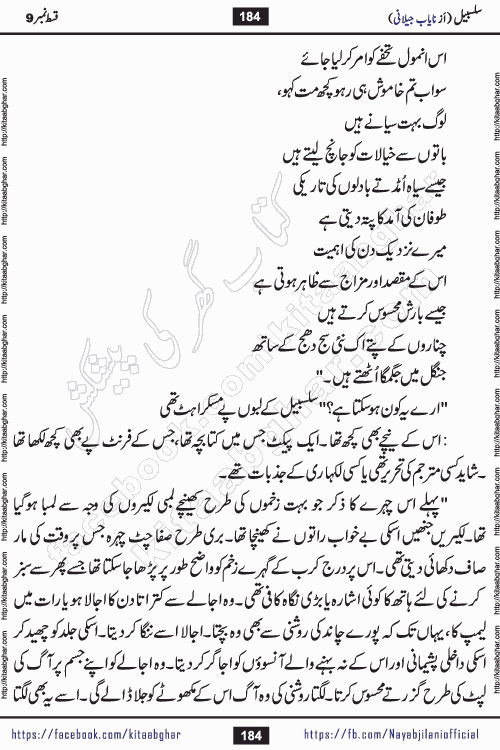 سلسبیل (از نایاب جیلانی)
184
قسط نمبر 9
اس انمول تحفے کو امر کر لیا جائے
سواب تم خاموش ہی رہو کچھ مت کہو،
لوگ بہت سیانے ہیں
باتوں سے خیالات کو جانچ لیتے ہیں
جیسے سیاہ اُمڈتے بادلوں کی تاریکی
طوفان کی آمد کا پتہ دیتی ہے
میرے نزدیک دن کی اہمیت
اس کے مقصد اور مزاج سے ظاہر ہوتی ہے
جیسے بارش محسوس کرتے ہیں
چناروں کے پتے اک نئی سج دھج کے ساتھ
جنگل میں جگمگا اُٹھتے ہیں۔"
"ارے یہ کون ہو سکتا ہے؟" سلسبیل کے لبوں پے مسکراہٹ تھی
: اس کے نیچے بھی کچھ تھا۔ ایک پیکٹ جس میں کتابچہ تھا، جس کے فرنٹ پے بھی کچھ لکھا تھا
۔ شاید کسی مترجم کی تحریر تھی یا کسی لکھاری کے جذبات تھے۔
"پہلے اس چہرے کا ذکر جو بہت زخموں کی طرح کھینچے لمبی لکیروں کی وجہ سے لمبا ہو گیا
تھا۔ لکیریں جنھیں اسکی بے خواب راتوں نے کھینچا تھا۔ بری طرح صفا چٹ چہرہ جس پر وقت کی مار
صاف دکھائی دیتی تھی۔ اس پر درج کرب کے گہرے زخم کو واضح طور پر پڑھا جا سکتا تھا جسے پھر سے سبز
کرنے کی لئے ہاتھ کا کوئی اشارہ یا بڑی نگاہ کافی تھی۔ وہ اجالے سے کتراتا دن کا اجالا ہو یا رات میں
لیمپ کا، یہاں تک کہ پورے چاند کی روشنی سے بھی وہ بچتا۔ اجالا اسے ننگا کر دیتا۔ اسکی جلد کو چھید کر
اسکی داخلی پشیمانی اور اس کے نہ بہنے والے آنسوؤں کو اجاگر کر دیتا۔ وہ اجالے کو اپنے جسم پر آگ کی
لپٹ کی طرح گزرتے محسوس کرتا۔ لگتا روشنی کی وہ آگ اس کے مکھوٹے کو جلا ڈالے گی۔ اسے یہ بھی لگتا
https://facebook.com/kitaabghar
184
https://fb.com/Nayabjilaniofficial
http://kitaabghar.com
کتاب گھر کی پیشکش